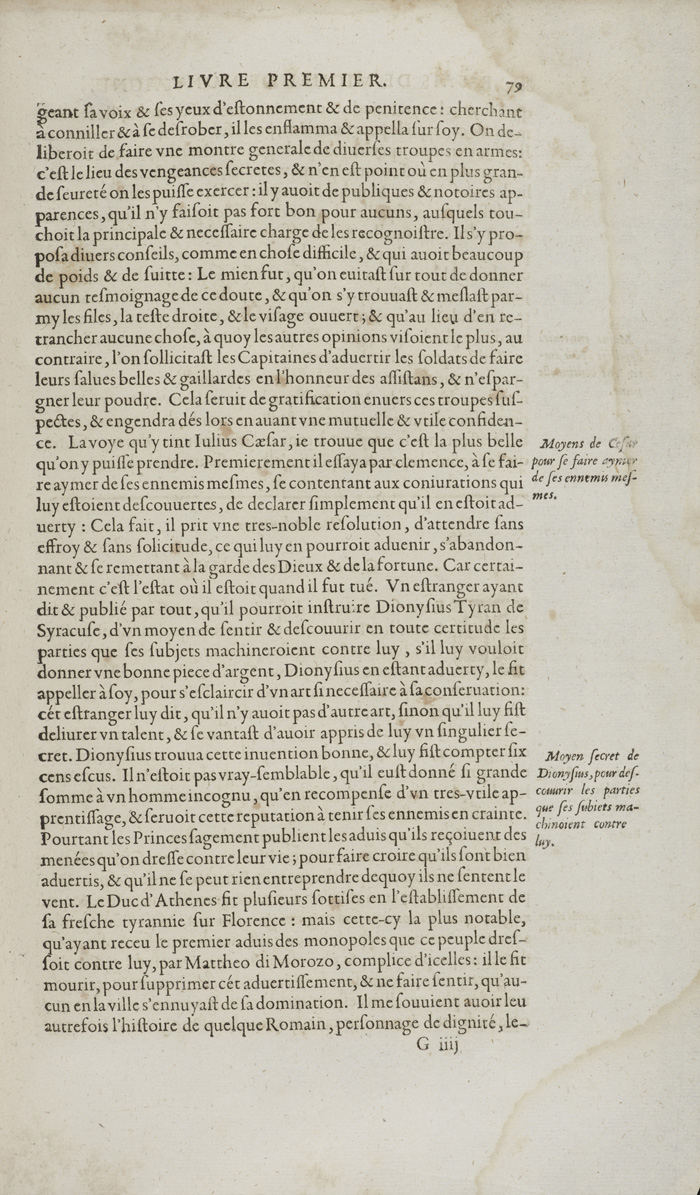 LIVRE PREMIER. 79
geant ſa voix & ſes yeux d'eſtonnement & de penitence : cherchant
à conniller & à ſe deſrober, il les enflamma & appella ſur ſoy. On de-
liberoit de faire vne montre generale de diuerſes troupes en armes:
c'eſt le lieu des vengeances ſecretes, & n'en eſt point où en plus gran-
de ſeureté on les puiſſe exercer : il y auoit de publiques & notoires ap-
parences, qu'il n'y faiſoit pas fort bon pour aucuns, auſquels tou-
choit la principale & neceſſaire charge de les recognoiſtre. Il s'y pro-
poſa diuers conſeils, comme en choſe difficile, & qui auoit beaucoup
de poids & de ſuitte : Le mien fut, qu'on euitaſt ſur tout de donner
aucun teſmoignage de ce doute, & qu'on s'y trouuaſt & meſlaſt par-
my les files, la teſte droite, & le viſage ouuert ; & qu'au lieu d'en re-
trancher aucune choſe, à quoy les autres opinions viſoient le plus, au
contraire, l'on ſollicitaſt les Capitaines d'aduertir les ſoldats de faire
leurs ſalues belles & gaillardes en l'honneur des aſſiſtans, & n'eſpar-
gner leur poudre. Cela ſeruit de gratification enuers ces troupes ſuſ-
pectes, & engendra dés lors en auant vne mutuelle & vtile confiden-
ce. La voye qu'y tint Iulius Cæſar, ie trouue que c'eſt la plus belle
qu'on y puiſſe prendre. Premierement il eſſaya par clemence, à ſe fai-
re aymer de ſes ennemis meſmes, ſe contentant aux coniurations qui
luy eſtoient deſcouuertes, de declarer ſimplement qu'il en eſtoit ad-
uerty : Cela fait, il prit vne tres-noble reſolution, d'attendre ſans
effroy & ſans ſolicitude, ce qui luy en pourroit aduenir, s'abandon-
nant & ſe remettant à la garde des Dieux & de la fortune. Car certai-
nement c'eſt l'eſtat où il eſtoit quand il fut tué. Vn eſtranger ayant
dit & publié par tout, qu'il pourroit inſtruire Dionyſius Tyran de
Syracuſe, d'vn moyen de ſentir & deſcouurir en toute certitude les
parties que ſes ſubjets machineroient contre luy, s'il luy vouloit
donner vne bonne piece d'argent, Dionyſius en eſtant aduerty, le fit
appeller à ſoy, pour s'eſclaircir d'vn art ſi neceſſaire à ſa conſeruation:
cét eſtranger luy dit, qu'il n'y auoit pas d'autre art, ſinon qu'il luy fiſt
deliurer vn talent, & ſe vantaſt d'auoir appris de luy vn ſingulier ſe-
cret. Dionyſius trouua cette inuention bonne, & luy fiſt compter ſix
cens eſcus. Il n'eſtoit pas vray-ſemblable, qu'il euſt donné ſi grande
ſomme à vn homme incognu, qu'en recompenſe d'vn tres-vtile ap-
prentiſſage, & ſeruoit cette reputation à tenir ſes ennemis en crainte.
Pourtant les Princes ſagement publient les aduis qu'ils reçoiuent des
menées qu'on dreſſe contre leur vie ; pour faire croire qu'ils ſont bien
aduertis, & qu'il ne ſe peut rien entreprendre dequoy ils ne ſentent le
vent. Le Duc d'Athenes fit pluſieurs ſottiſes en l'eſtabliſſement de
ſa freſche tyrannie ſur Florence : mais cette-cy la plus notable,
qu'ayant receu le premier aduis des monopoles que ce peuple dreſ-
ſoit contre luy, par Mattheo di Morozo, complice d'icelles : il le fit
mourir, pour ſupprimer cét aduertiſſement, & ne faire ſentir, qu'au-
cun en la ville s'ennuyaſt de ſa domination. Il me ſouuient auoir leu
autrefois l'hiſtoire de quelque Romain, perſonnage de dignité, le-
G iiij
Moyens de Ceſar
pour ſe faire aymer
de ſes ennemis meſ-
mes.
Moyen ſecret de
Dionyſius, pour deſ-
couurir les parties
que ſes ſubiets ma-
chinoient contre
luy.